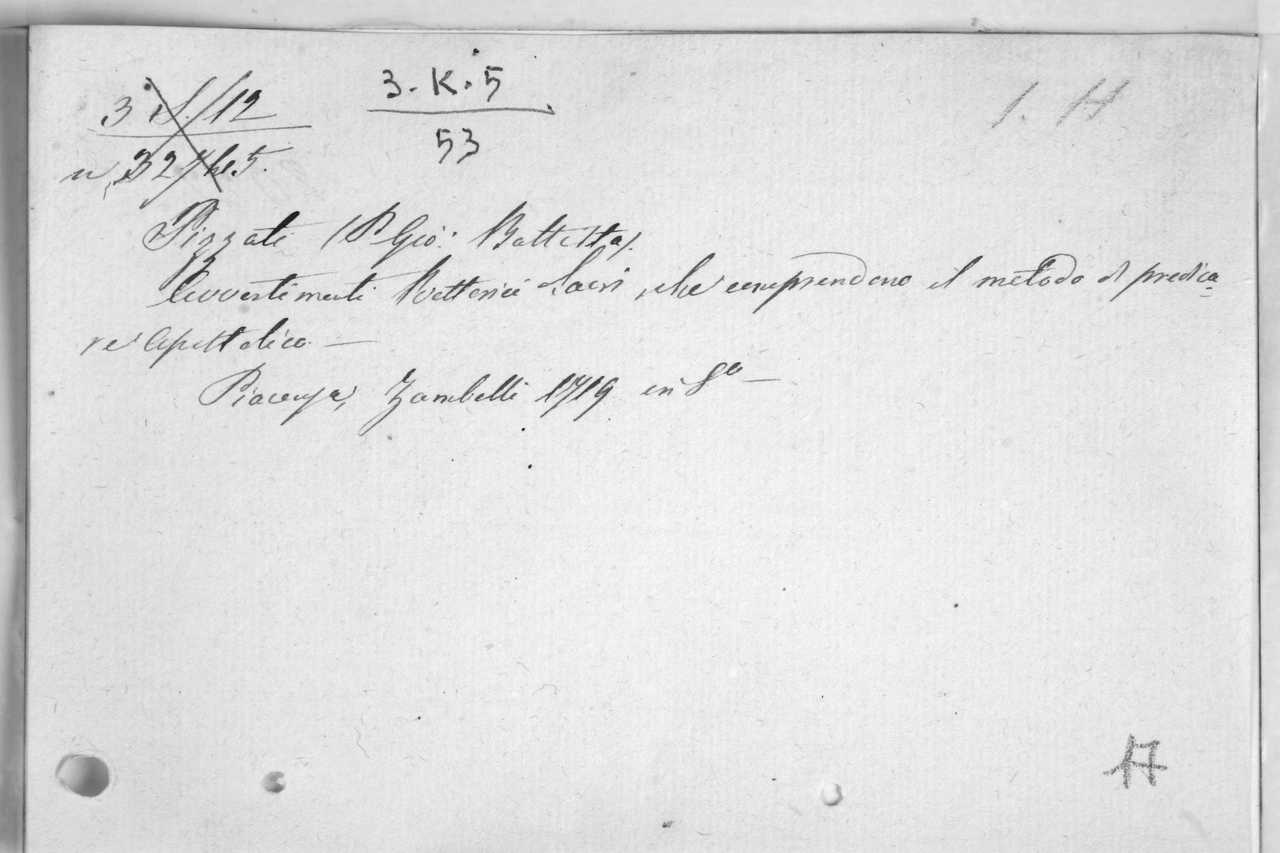 3. K. 5
53
1. H
Pizzati (P Gio: Battista).
Avvertimenti Rettorici Sacri, che comprendono il metodo di predica=
re Apostolico —
Piacenza, Zambelli 1719 in 8º —
17